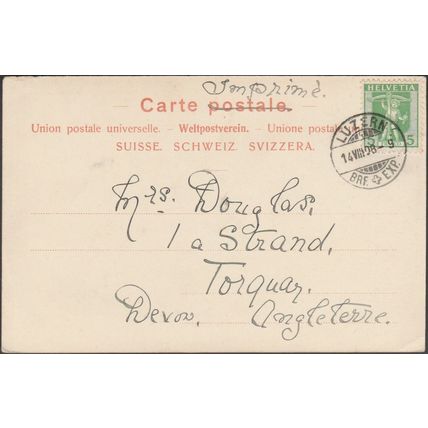 Imprimé.
Carte postale.
Union postale universelle. – Weltpostverein. – Unione postale
SUISSE. SCHWEIZ. SVIZZERA.
HELVETIA
5
LUZERN
14.VIII.08.-9
BRF. EXP.
Mrs. Douglas,
1a Strand,
Torquay,
Devon. Angleterre.